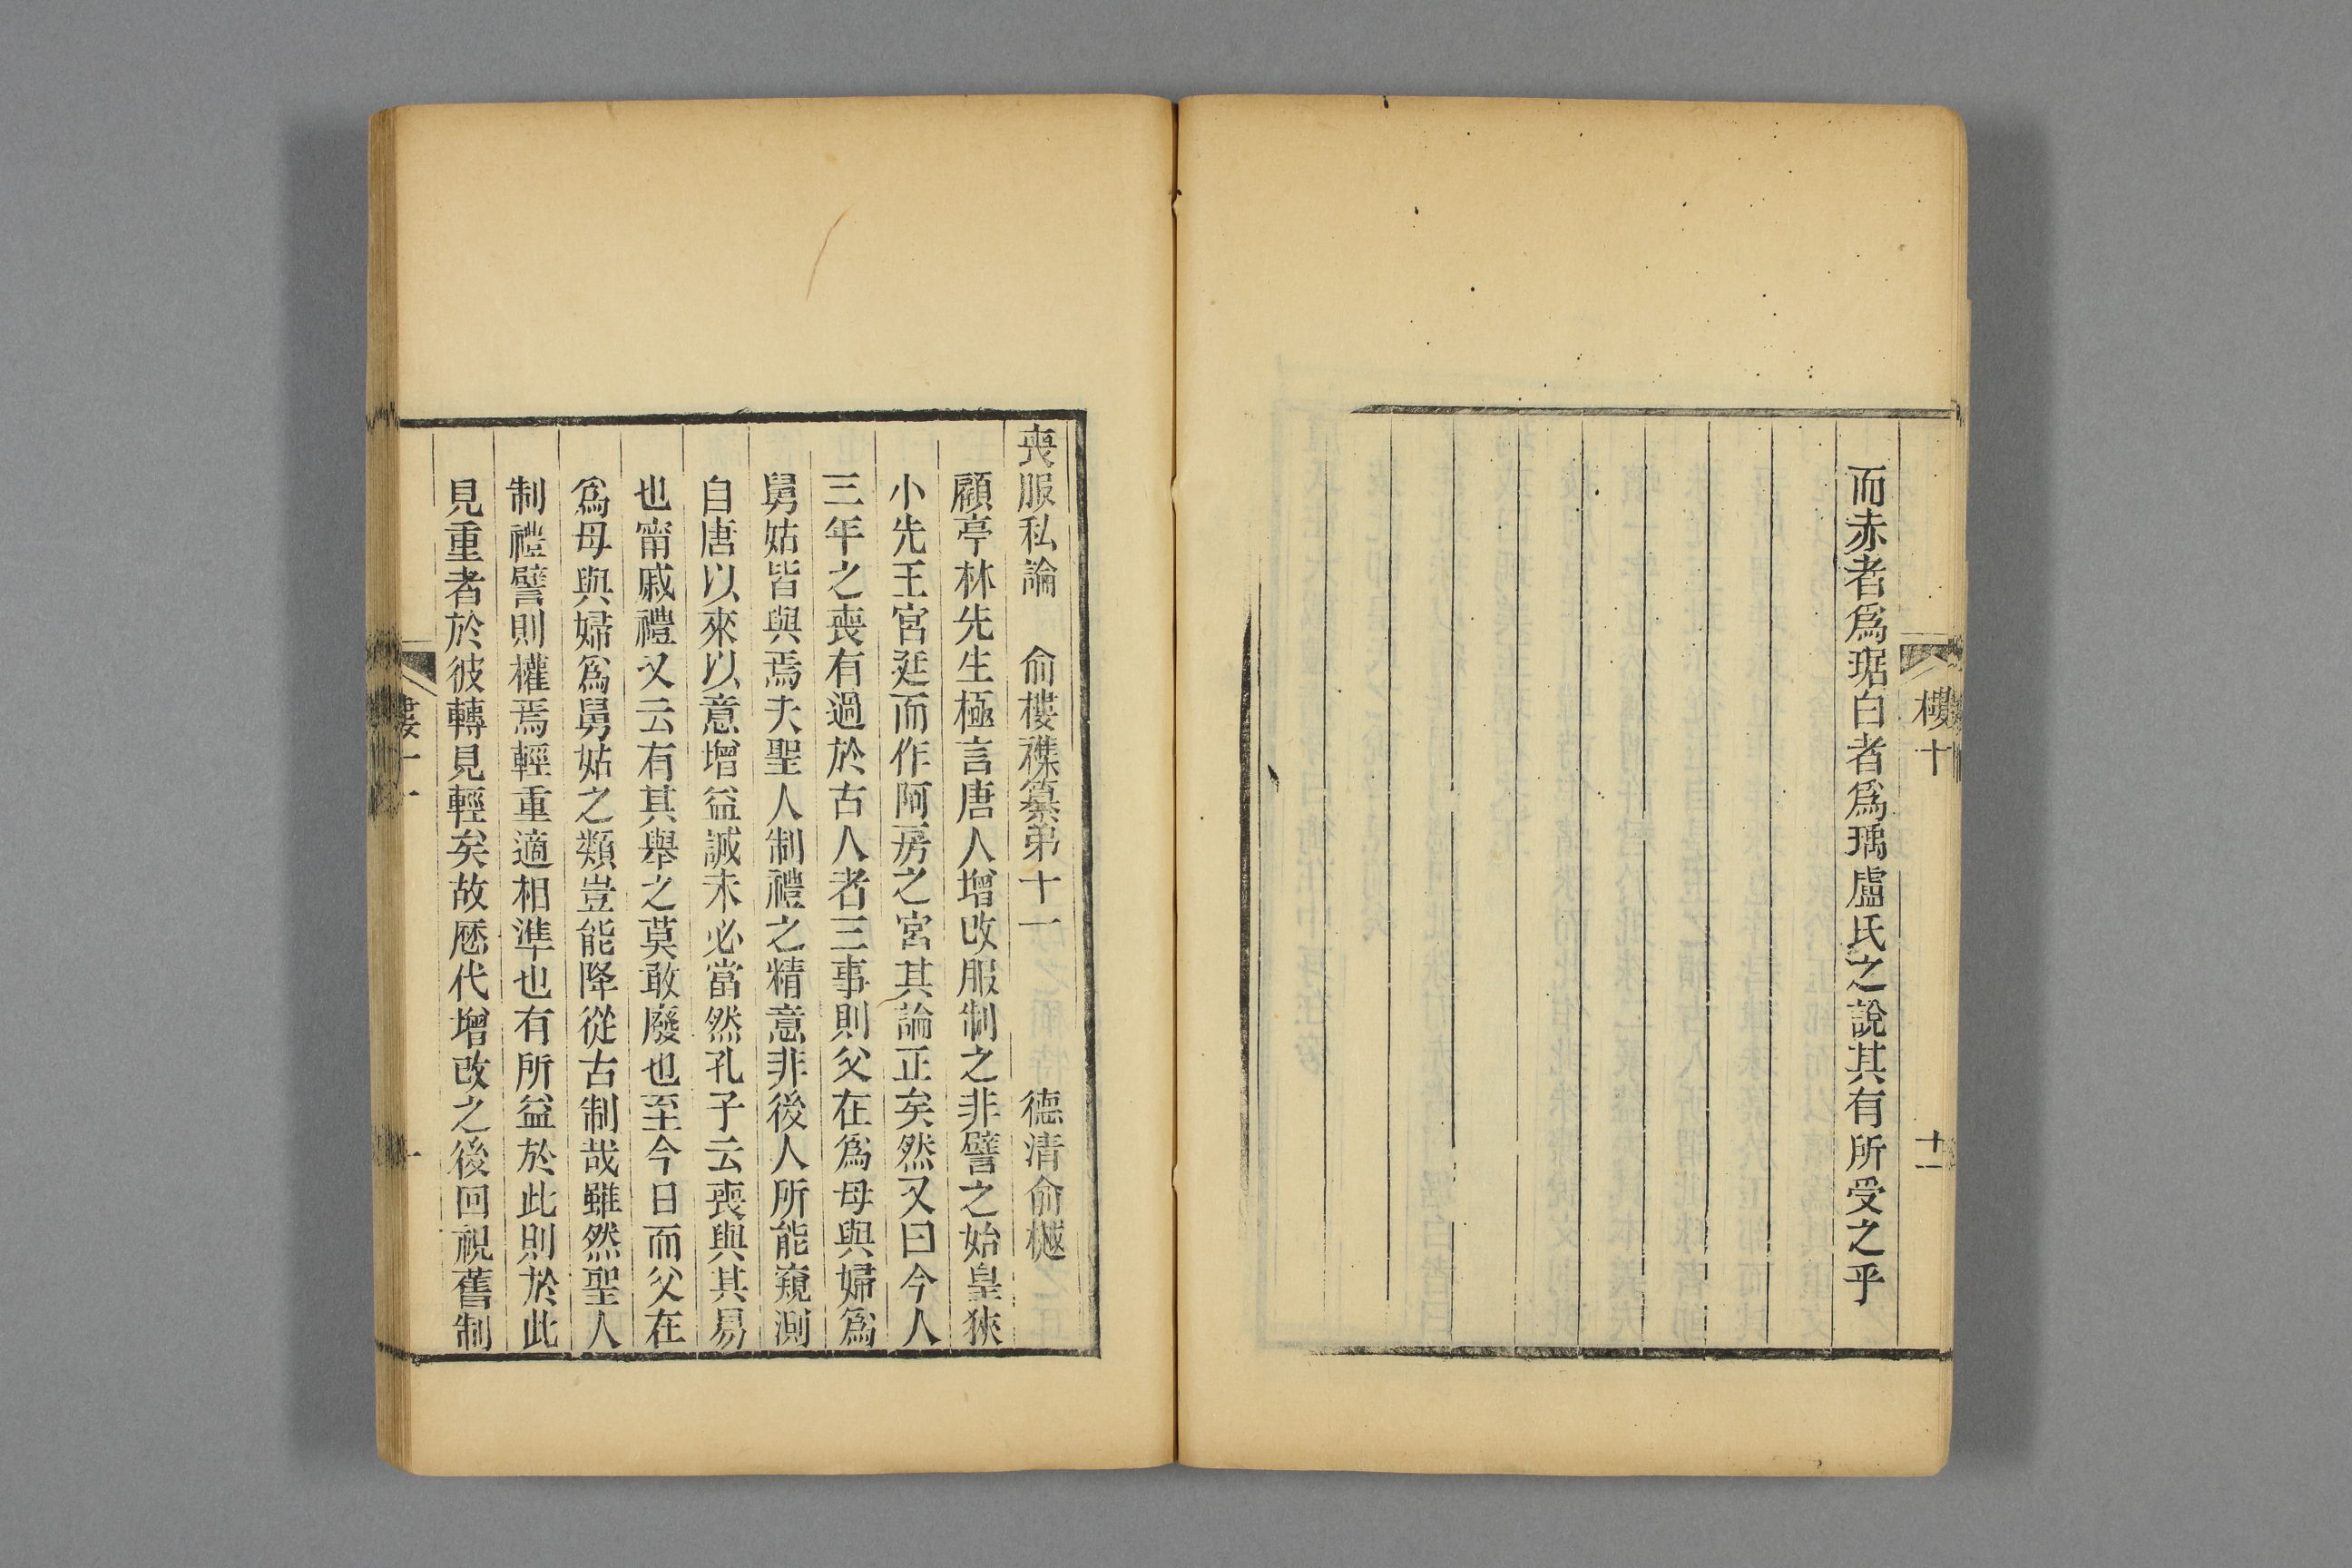 樓十
十一
而赤者爲琚白者爲瑀盧氏之說其有所受之乎
喪服私論　俞樓襍纂弟十一　德清俞樾
顧亭林先生極言唐人增改服制之非譬之始皇狹
小先王宮廷而作阿房之宮其論正矣然又曰今人
三年之喪有過於古人者三事則父在爲母與婦爲
舅姑皆與焉夫聖人制禮之精意非後人所能窺測
自唐以來以意增益誠未必當然孔子云喪與其易
也甯戚禮又云有其舉之莫敢廢也至今日而父在
爲母與婦爲舅姑之類豈能降從古制哉雖然聖人
制禮譬則權焉輕重適相準也有所益於此則於此
見重者於彼轉見輕矣故厯代增改之後回視舊制
樓十一
一